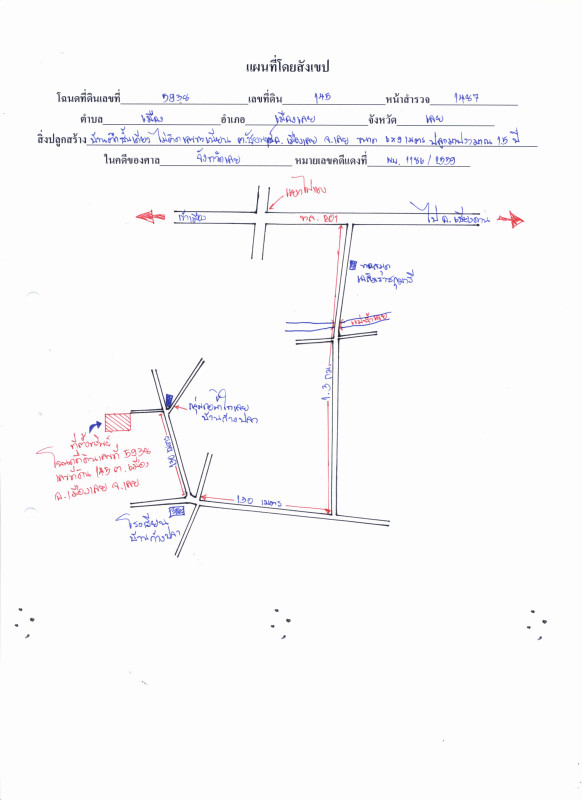 แผนที่โดยสังเขป
โฉนดที่ดินเลขที่ 5938 เลขที่ดิน 145 หน้าสำรวจ 1487
ตำบล เมือง อำเภอ เมืองเลย จังหวัด เลย
สิ่งปลูกสร้าง บ้านตึกชั้นเดียว ไม่ติดเลขทะเบียน อ.เมืองเลย จ.เลย ขนาด 6x9 เมตร ปลูกมาประมาณ 15 ปี
ในคดีของศาล จังหวัดเลย หมายเลขคดีแดงที่ ผบ. 1186 / 2559
เข้าเมือง
ทล. 201
ไป อ.เชียงคาน
ห้องสมุด
เฉลิมราชกุมารี
แม่น้ำเลย
1.3 กม.
บ้านก้างปลา
ที่ตั้งทรัพย์
โฉนดที่ดินเลขที่ 5938
เลขที่ดิน 145 ต.เมือง
อ.เมืองเลย จ.เลย
130 เมตร
โรงเรียน
บ้านก้างปลา